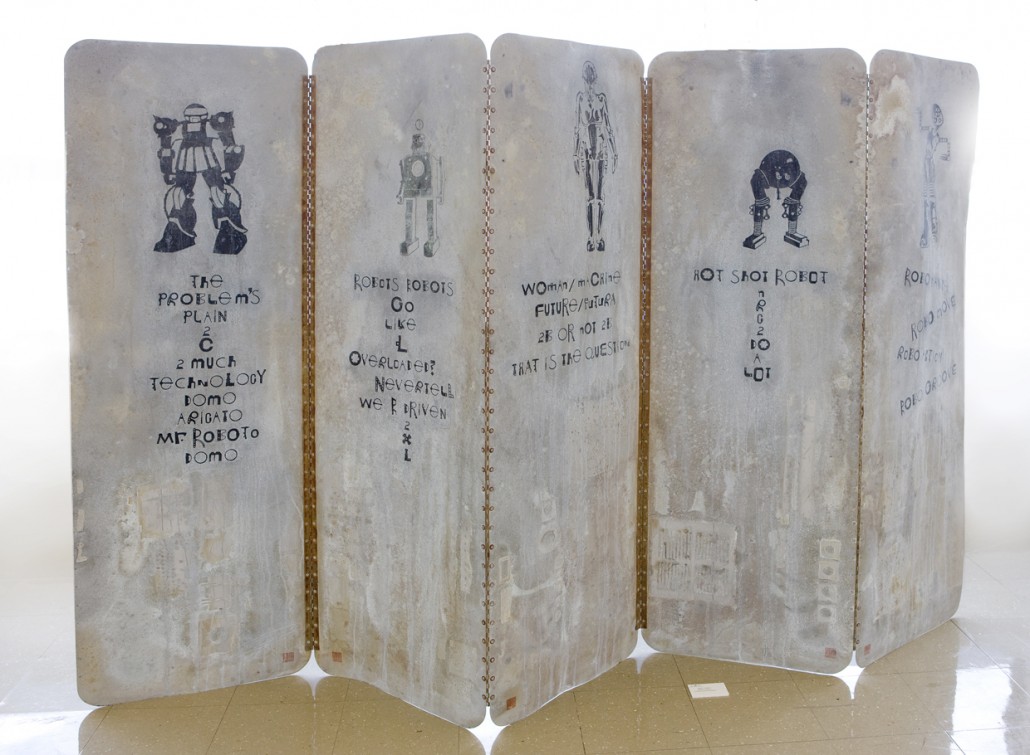 THE
PROBLEM'S
PLAIN
2
C
2 MUCH
TECHNOLOGY
DOMO
ARIGATO
MR ROBOTO
DOMO
ROBOTS ROBOTS
GO
LIKE
L
OVERLOADED?
NEVERTELL
WE R DRIVEN
2
X
L
WOMAN/MACHINE
FUTURE/FUTURA
2B OR NOT 2B
THAT IS THE QUESTION
HOT SHOT ROBOT
N
R
G
2
DO
A
LOT